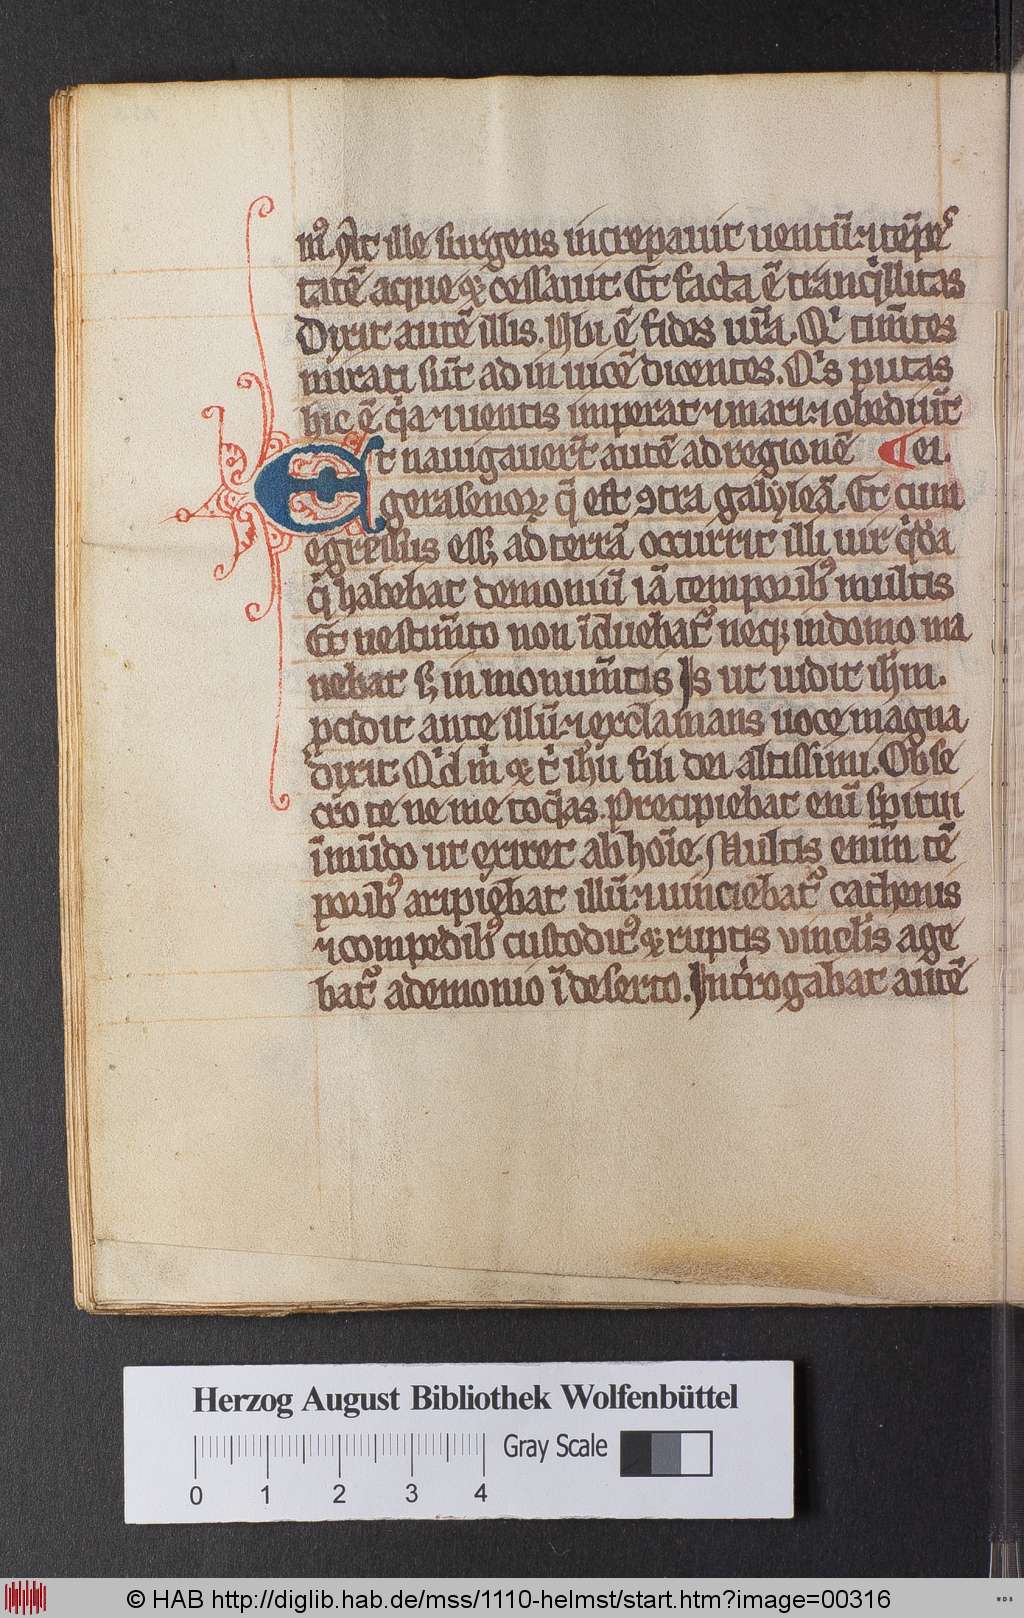 mꝰ. At ille surgens increpauit uentū. ⁊ tēpeſ
tatē aque ⁊ cessauit. Et facta ē tranqͥllitas
Dixit autē illis. Vbi ē fides ur̄a. Qͥ tim̄tes
mirati sūt ad in uicē dicentes. Qͥs putas
hic ē qͥa ⁊ uentis imperat ⁊ mari ⁊ obediūt
Et nauigauer̄t autē ad regionē ¶ ei.
gerasenoꝝ q̄ est ꝯtra galyleā. Et cum
egressus eēt ad terrā occurrit illi uir qͥdā
qͥ habebat demoniū iā temporibꝰ multis
Et uestim̄to non īduebatᷣ neqꝫ in domo ma
nebat sꝫ in monum̄tis Is ut uidit ih̄m.
ꝓcidit ante illū. ⁊ exclamans uoce magna
dixit. Qͥd m̄ ⁊ tͥ ih̄u fili dei altissimi. Obse
cro te ne me torq̄as. Precipiebat enī spiritui
īmūdo ut exiret ab hoīe. Multis enim tē
poribꝰ aripiebat illū. ⁊ uinciebatᷣ cathenis
⁊ compedibꝰ custoditꝰ ⁊ ruptis vinclis age
batᷣ a demonio ī deserto. Int̄rogabat autē
Herzog August Bibliothek Wolfenbüttel
Gray Scale
0 1 2 3 4
© HAB http://diglib.hab.de/mss/1110-helmst/start.htm?image=00316